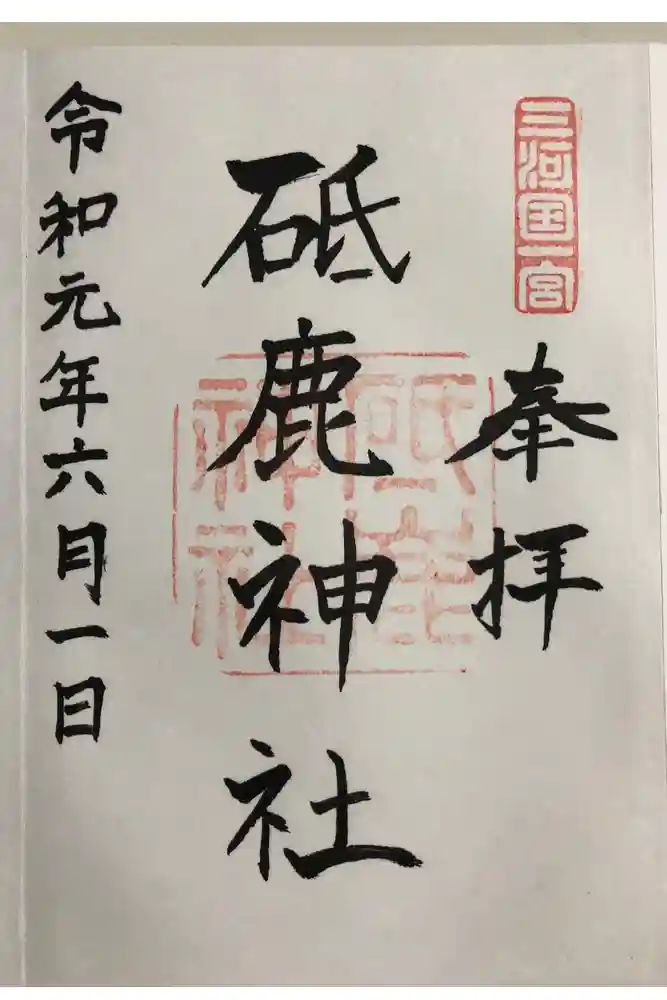 三河国一宮
奉拝
砥鹿神社
砥鹿
神社
令和元年六月一日